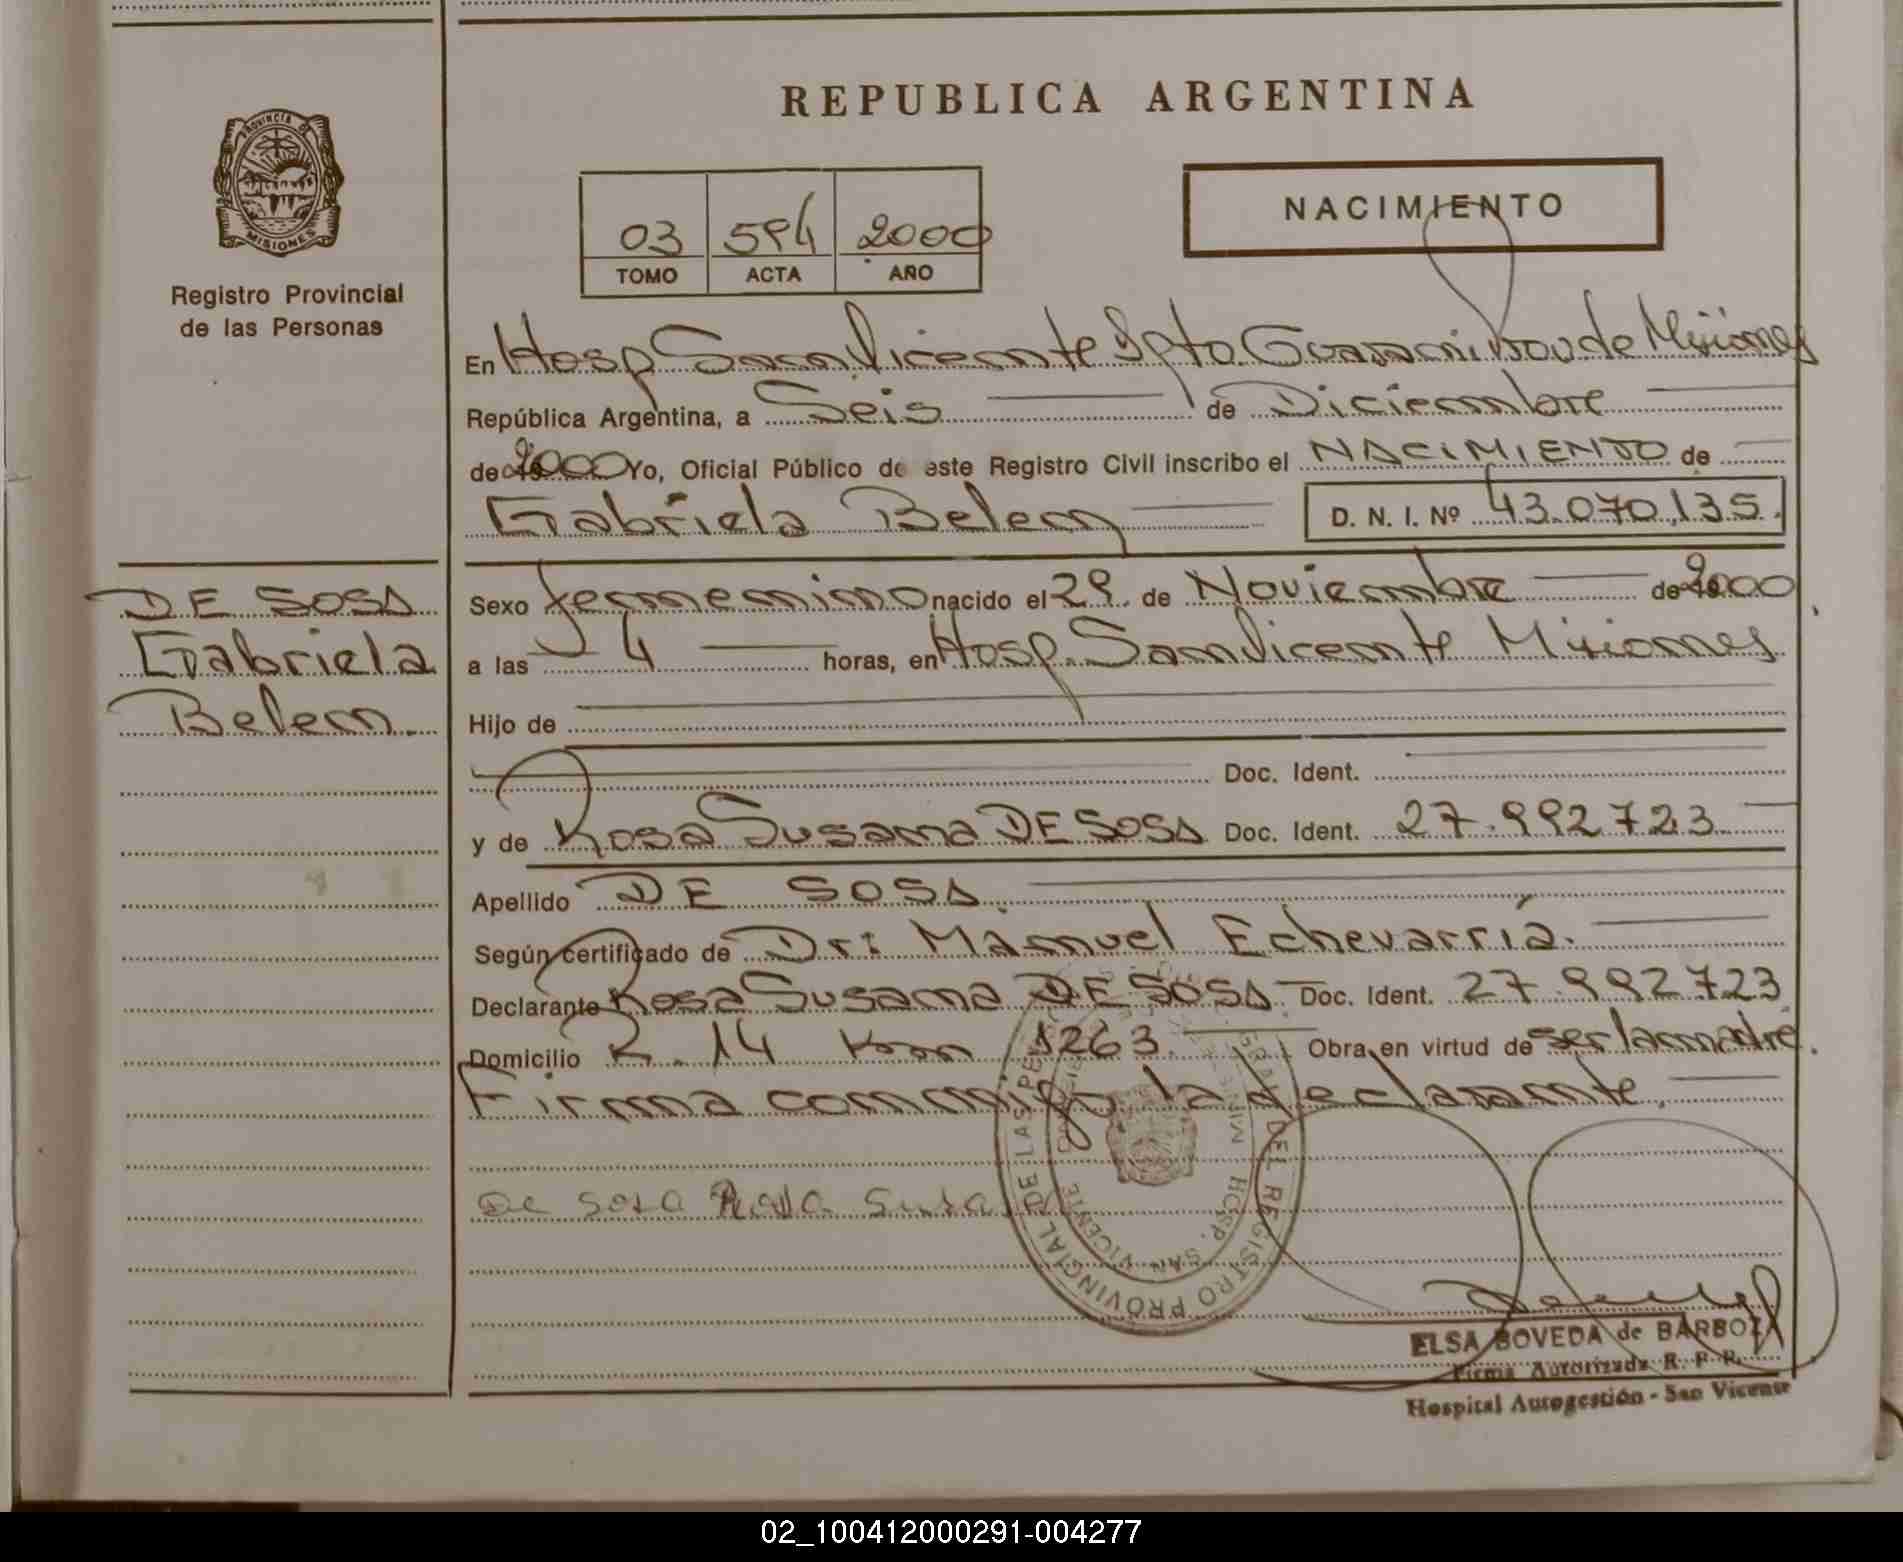 REPUBLICA ARGENTINA
PROVINCIA DE
MISIONES
Registro Provincial
de las Personas
NACIMIENTO
03 594 2000
TOMO ACTA AÑO
En Hosp San Vicente Dpto. Guarani Prov de Misiones
República Argentina, a Seis de Diciembre
de 2000 Yo, Oficial Público de este Registro Civil inscribo el NACIMIENTO de
Gabriela Belen D. N. I. Nº 43.070.135.
DE SOSA
Gabriela
Belen.
Sexo femenino nacido el 29 de Noviembre de 2000
a las 4 horas, en Hosp. San Vicente Misiones
Hijo de
Doc. Ident.
y de Rosa Susana DE SOSA Doc. Ident. 27.992723
Apellido DE SOSA.
Según certificado de Dr: Manuel Echevarría.
Declarante Rosa Susana DE SOSA Doc. Ident. 27.992723
Domicilio R. 14 Km 1263. Obra en virtud de ser la madre.
Firma conmigo la declarante.
De Sosa Rosa Susa
REGISTRO PROVINCIAL DE LAS
HOSP. SAN VICENTE
ELSA BOVEDA de BARBOZA
Firma Autorizada R. P. P.
Hospital Autogestión - San Vicente
02_100412000291-004277